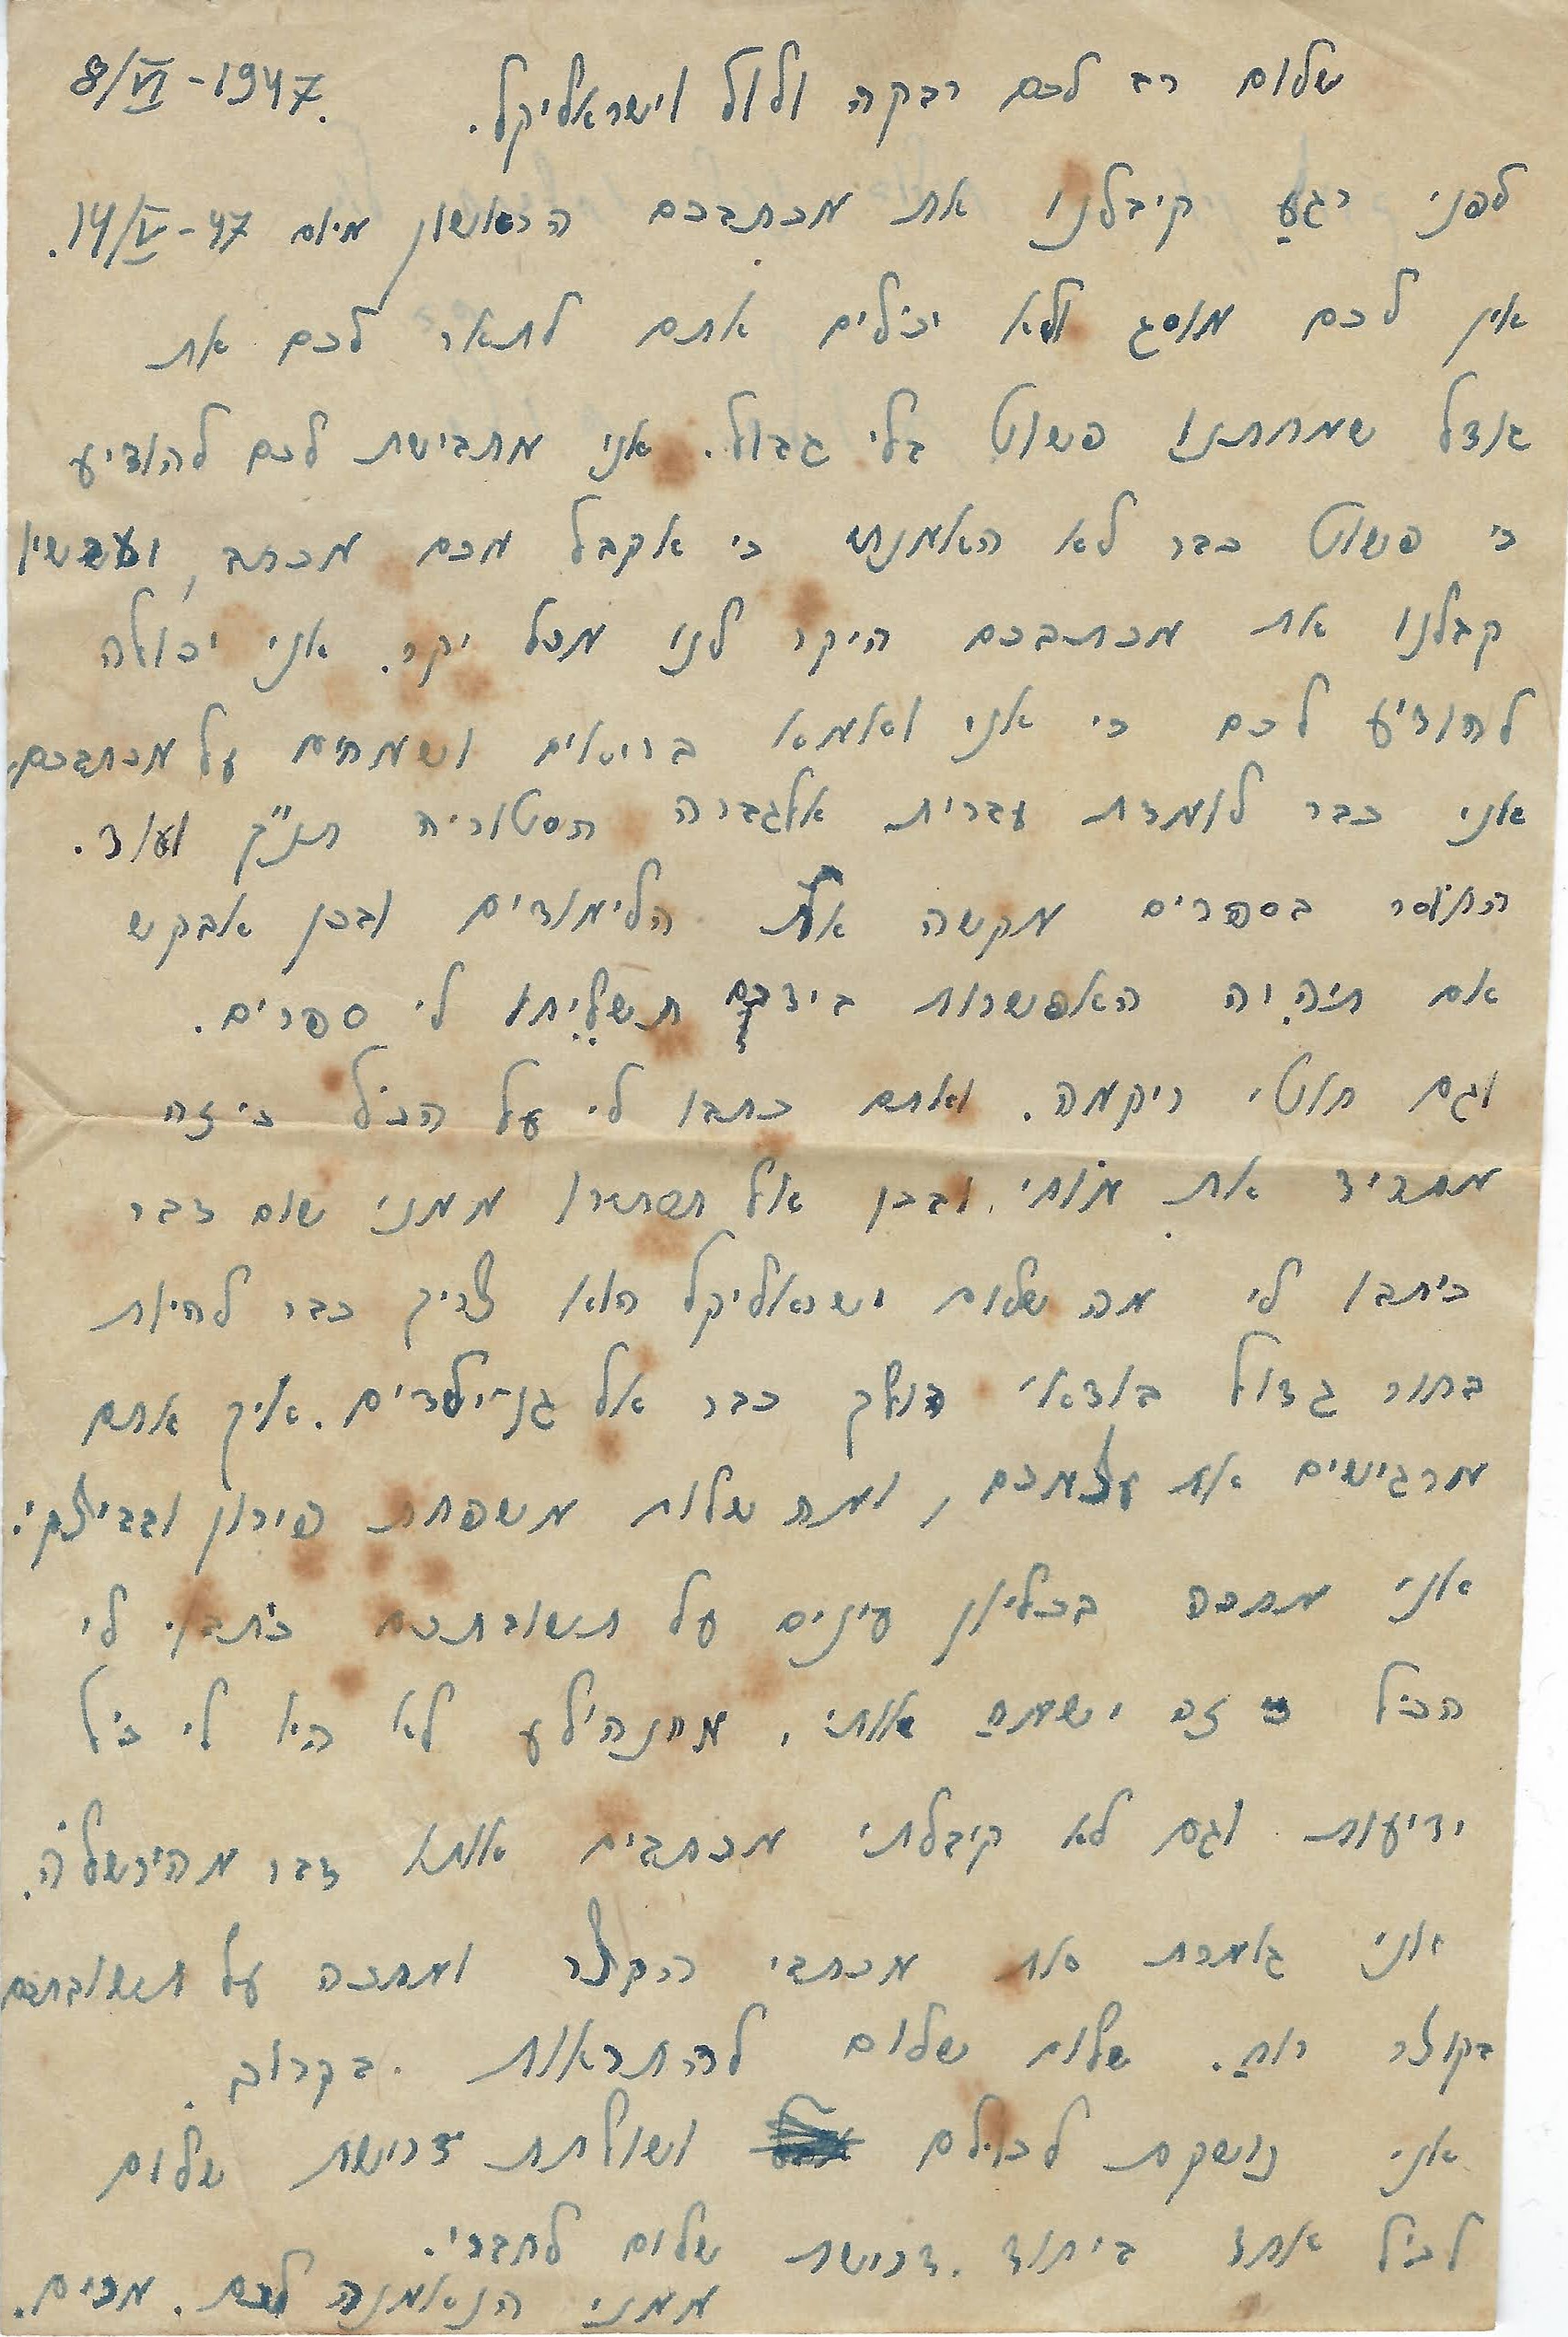 8/VI-1947. שלום רב לכם רבקה ולול וישראליקל.
לפני רגע קיבלנו את מכתבכם הראשון מיום 14/V-47.
אין לכם מוסג ולא יכולים אתם לתאר לכם את
גודל שמחתנו פשוט בלי גבול. אני מתבישת לכם להודיע
כי פשוט כבר לא האמנתי כי אקבל מכם מכתב, ועכשיו
קבלנו את מכתבכם היקר לנו מכל יקר. אני יכולה
להודיע לכם כי אני ואמא בריאים ושמחים על מכתבכם.
אני כבר לומדת עברית אלגברה הסטוריה תנ"ך ועוד.
החוסר בספרים מקשה את הלימודים ובכן אבקש
אם תהיה האפשרות בידכם תשליחו לי ספרים.
וגם חוטי ריקמה. ואתם כתבו לי על הכל כי זה
מטריד את מוחי, ובכן אל תסתירו ממני שום דבר
כיתבו לי מה שלום ישראליקל הוא צריך כבר להיות
בחור גדול בודאי הולך כבר אל גן-ילדים. איך אתם
מרגישים את עצמכם, ומה שלום משפחת פירון
אני מחכה בכליון עינים על תשובתכם כתבו לי
הכל זה ישמח אותי, לא היו לי כל
ידיעות וגם לא קיבלתי מכתבים אותו דבר
אני גומרת את מכתבי הקצר ומחכה על תשובתכם
בקוצר רוח. שלום שלום להתראות בקרוב.
אני נושקת לכולם ושולחת דרישת שלום
לכל אחד ביחוד. דרישת שלום לחברי.
ממני הנאמנה לכם. מרים.